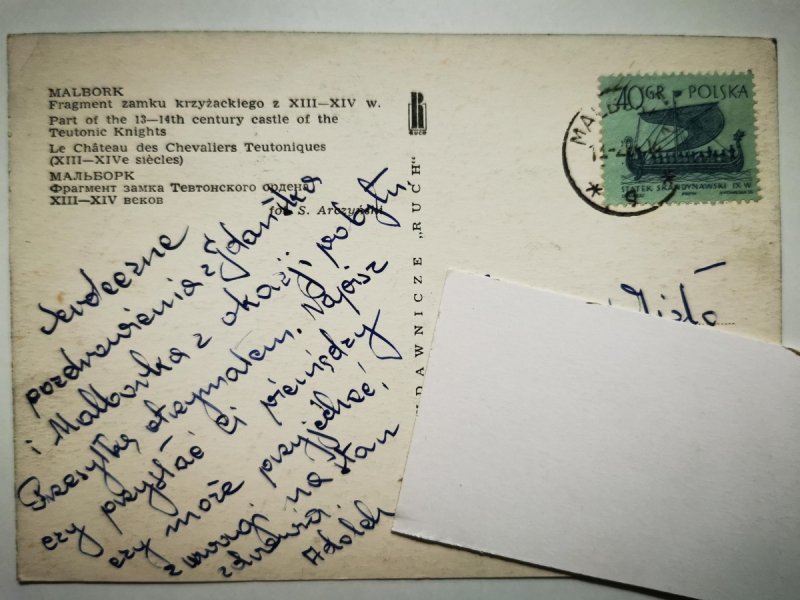 MALBORK
Fragment zamku krzyżackiego z XIII—XIV w.
Part of the 13—14th century castle of the
Teutonic Knights
Le Château des Chevaliers Teutoniques
(XIII—XIVe siècles)
МАЛЬБОРК
Фрагмент замка Тевтонского ордена
XIII—XIV веков
fot. S. Arczyński
RUCH
DAWNICZE „RUCH"
40 GR POLSKA
STATEK SKANDYNAWSKI IX W
Serdeczne
pozdrowienia z Gdańska
i Malborka z okazji pobytu,
Przesyłkę otrzymałem. Napisz
czy przysłać Ci pieniędzy
czy może przyjechać,
z uwagi na stan
zdrowia.
Adolch